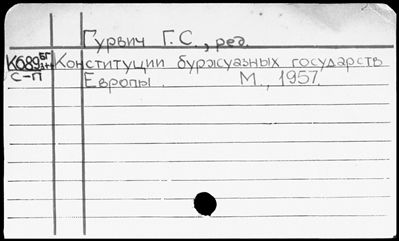 Гурвич Г.С., ред.
К689 Конституции буржуазных государств
С-П Европы. М., 1957.